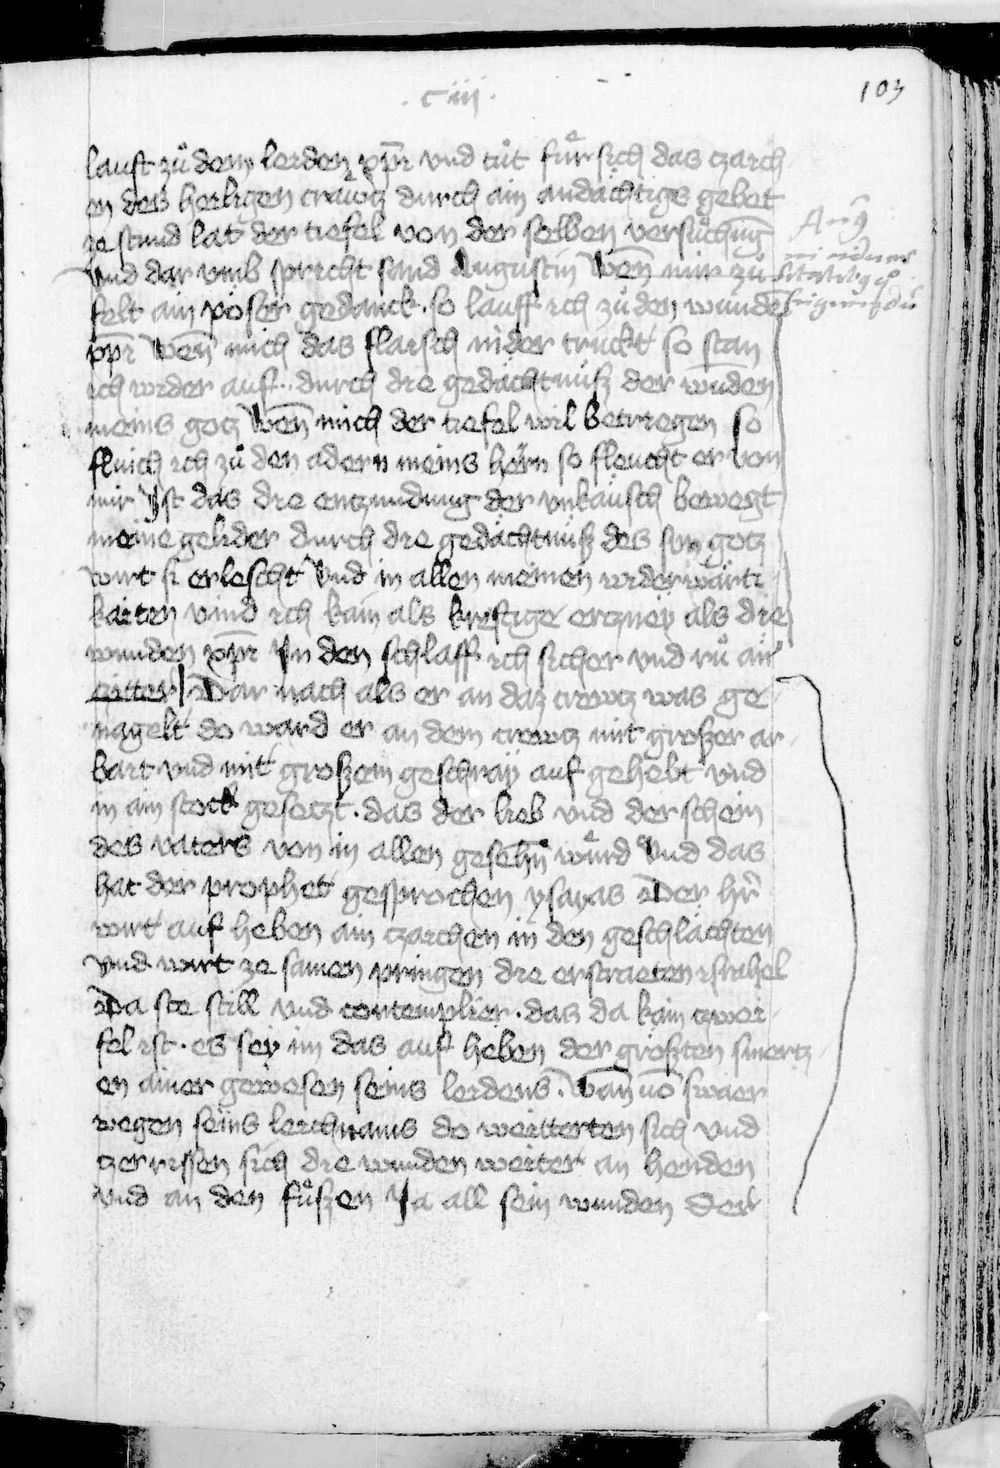 · ciii ·
103
lauft zů dem leiden xp̄i vnd tůt für sich das tzaich
en des heiligen cräwtz durch ain andächtigs gebet
ze stund lat der tiefel von der selben versůchūg
Vnd dar vmb spricht sand Augustin Wen̄ mir zů
felt ain pöser gedanck · so lauff ich zů den wunden
xp̄i Wen̄ mich das flaisch nider truckt so stan
ich wider auf · durch die gedächtnüsz der wūden
meins gotz Wen̄ mich der tiefel wil betriegen so
fluich ich zů den adern meins hern so fleucht er von
mir Ist das die entzundung der vnkäusch bewegt
meine gelider durch die gedächtnüsz des sun gotz
wirt si erlescht Vnd in allen meinen widerwärti
kaiten vind ich kain als kreftige ertzney als die
wunden xp̄i In den schlaff ich sicher vnd rů an
zitter Dar nach als er an daz crewtz was ge
nagelt do ward er an dem crewtz mit groszer ar
bait vnd mit groszem geschray auf gehebt vnd
in ain stock gesetzt · das der lieb vnd der schein
des vaters von in allen gesehn̄ würd Vnd das
hat der prophet gesprochen ysayas Der hr̄
wirt auf heben ain tzaichen in den geschlächten
vnd wirt ze samen pringen die erstraeten israhel
Da ste still vnd contemplier · das da kain zwei
fel ist · es sey im das auf heben der gröszten smertz
en ainer gewesen seins leidens · Wan vō swaer
wegen seins leichnams do weitterten sich vnd
tzerrissen sich die wunden weiter an henden
vnd an den füszen Ja all sein wunden Der
Aug̃